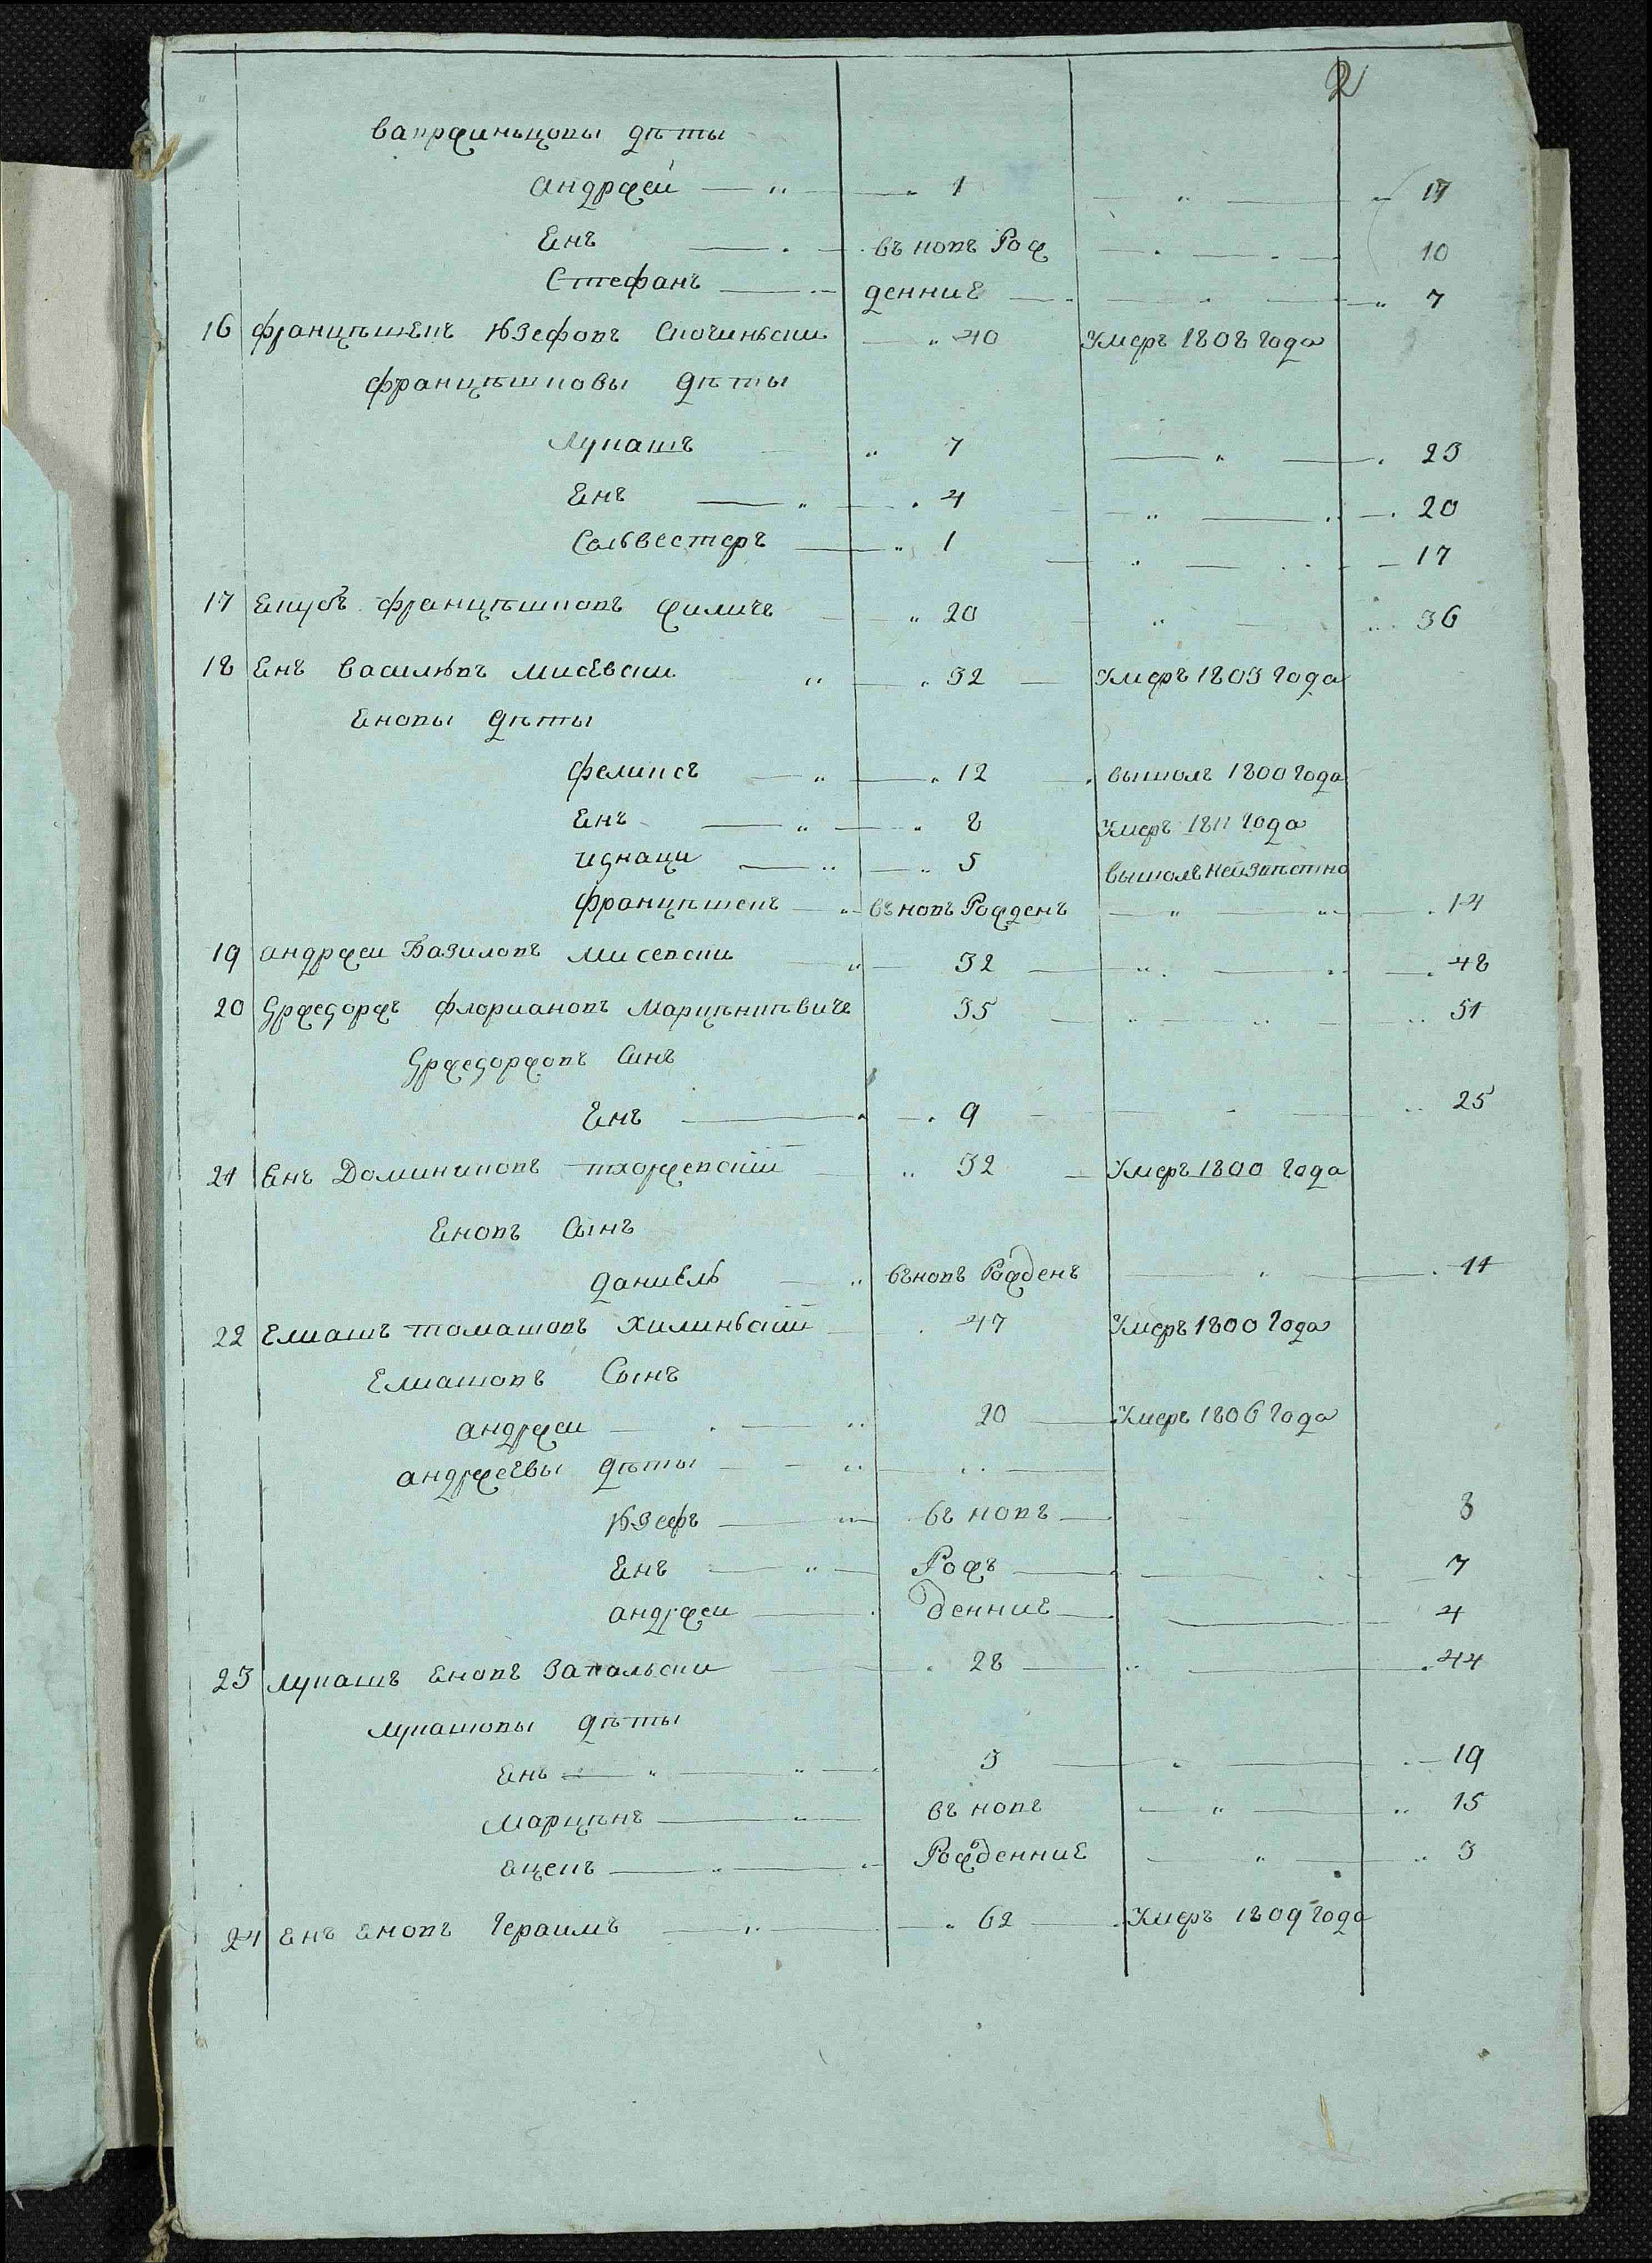 2
вавржиньцовы дѣты
андржей 1 17
Енъ въ новъ Рож 10
Стефанъ денние 7
16 францѣшекъ Юзефовъ Скочиньски 40 Умеръ 1808 года
францѣшковы дѣты
лукашъ 7 23
Енъ 4 20
Сольвестеръ 1 17
17 Екубъ францѣшковъ жиличъ 20 36
18 Енъ Василювъ мисЕвски 32 Умеръ 1803 года
Еновы дѣты
феликсъ 12 вышолъ 1800 года
Енъ 8 Умеръ 1811 года
игнаци 5 вышолъ неизвѣстно
францѣшекъ въ новъ Рожденъ 14
19 андржеи Базиловъ мисевски 32 48
20 Гржегоржъ флориановъ марцѣнкѣвичъ 35 51
Гржегоржовъ Синъ
Енъ 9 25
21 Енъ Доминиковъ тхоржевскій 32 Умеръ 1800 года
Еновъ Сынъ
даниЕль въ новъ Рожденъ 11
22 Елиашъ томашовъ хилиньскій 47 Умеръ 1800 года
Елиашовъ Сынъ
андржеи 20 Умеръ 1806 года
андржеевы дѣты
Юзефъ въ новъ 8
Енъ Рожъ 7
андржеи денние 4
23 лукашъ Еновъ Закольски 28 44
лукашовы дѣты
Енъ 3 19
марцѣнъ въ новъ 15
Яцекъ Рожденние 3
24 Енъ Еновъ Гераимъ 62 Умеръ 1809 года